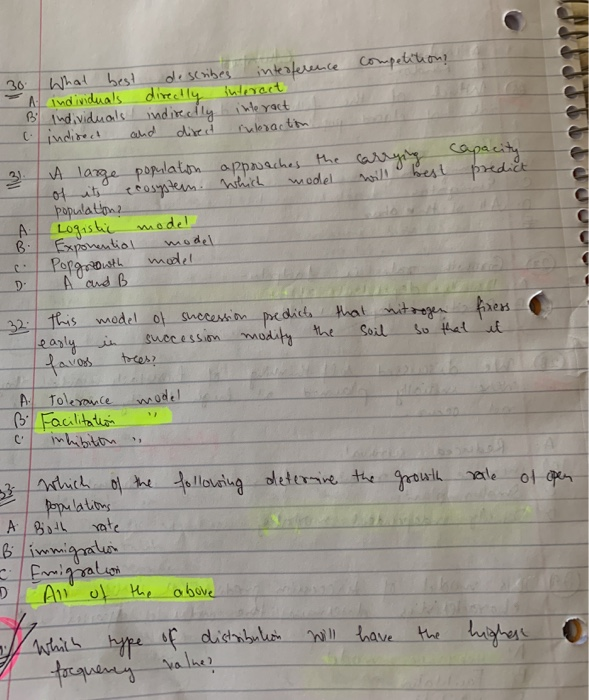 30. What best describes interference competition?
A. individuals directly interact
B. Individuals indirectly interact
C. indirect and direct interaction
31. A large population approaches the carrying capacity
of its ecosystem. Which model will best predict
population?
A Logistic model
B. Exponential model
C. Popgrowth model
D. A and B
32. This model of succession predicts that nitrogen fixers
early in succession modify the soil so that it
favors trees?
A. Tolerance model
B. Facilitation "
C. inhibition "
33. Which of the following determine the growth rate of open
populations
A. Birth rate
B. immigration
C. Emigration
D All of the above
Which type of distribution will have the highest
frequency value?